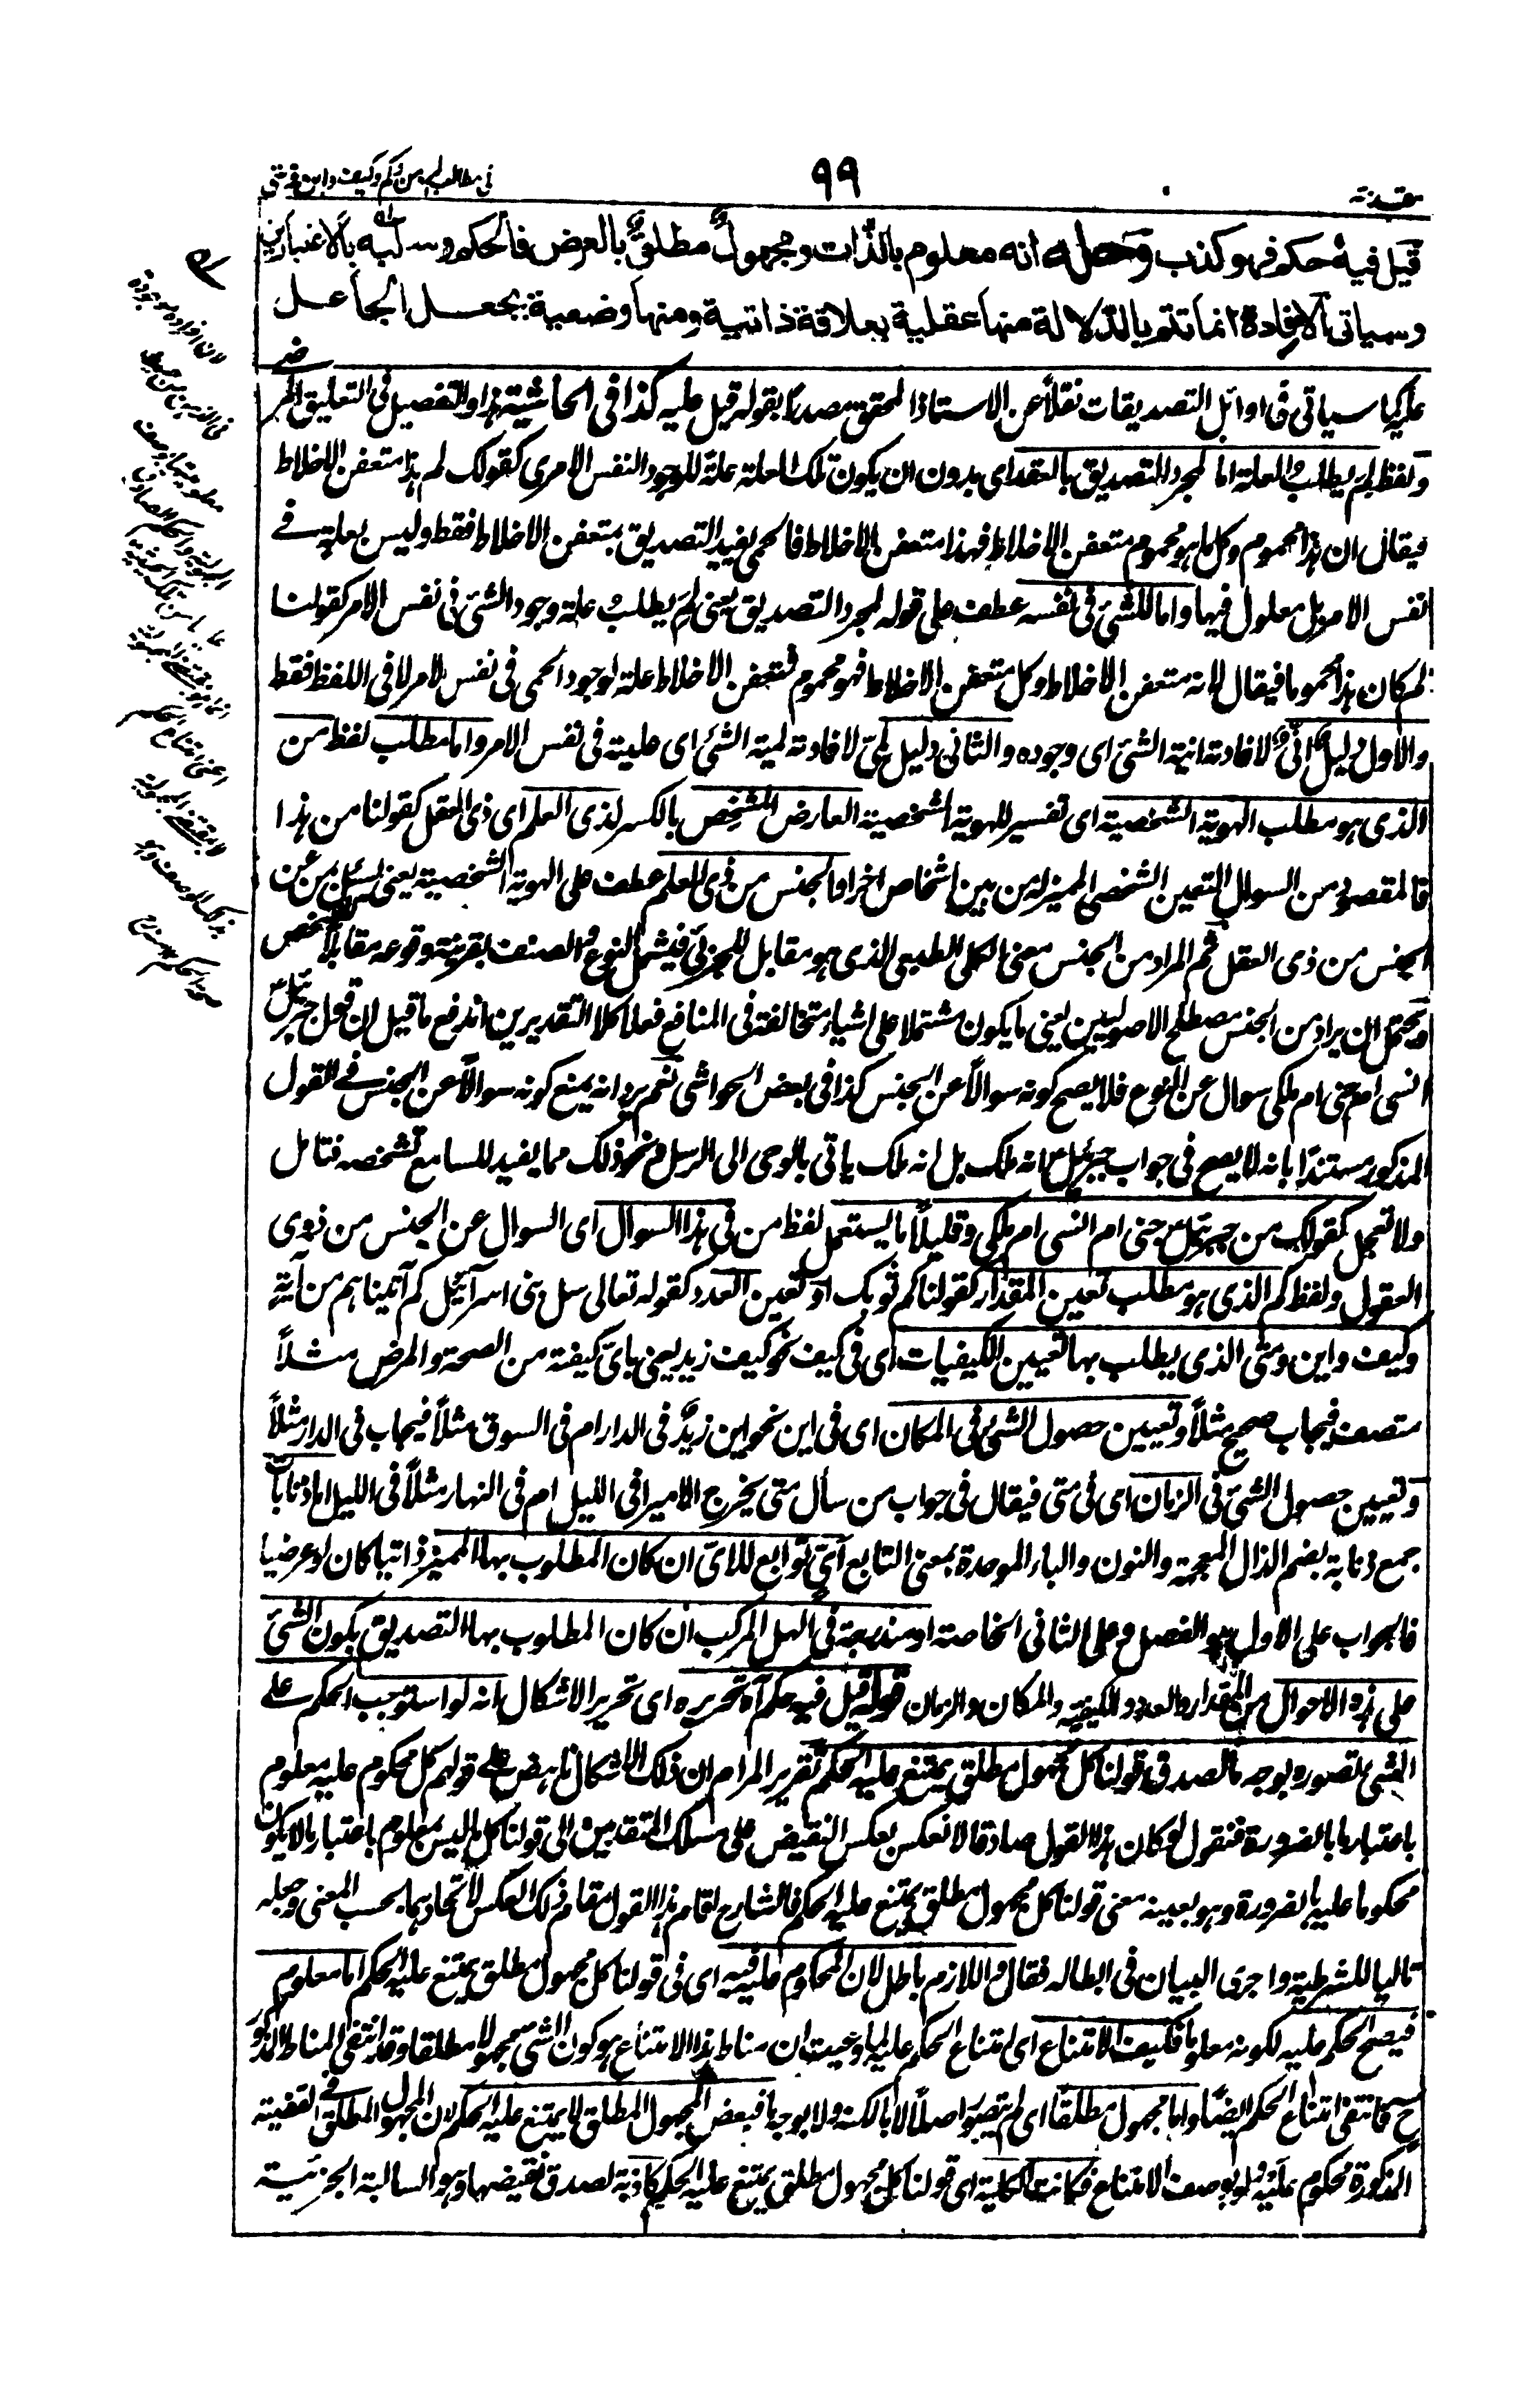 مقدمة
٩٩
في مطالب لم ومن وكم وكيف واين ومتى
قيل فيه حكم فهو كذب وحله انه معلوم بالذات ومجهول مطلق بالعرض فالحكم وسلبه بالاعتبارين
وسياتي الافادة انما تتم بالدلالة منها عقلية بعلاقة ذاتية ومنها وضعية بجعل الجاعل
عليه كما سياتي في اوائل التصديقات نقلاً عن الاستاذ المحقق مصدرا بقوله قيل عليه كذا في الحاشية هذا والتفصيل في التعليق المرضي
ولفظ لم يطلب العلة اما لمجرد التصديق بالعقد اى بدون ان يكون تلك العلة علة للوجود النفس الامرى كقولك لم هذا متعفن الاخلاط
فيقال ان هذا محموم وكل ما هو محموم متعفن الاخلاط فهذا متعفن الاخلاط فالحمى يفيد التصديق بتعفن الاخلاط فقط وليس بعلة في
نفس الامر بل معلول فيها واما للشئ في نفسه عطف على قوله لمجرد التصديق يعني لم يطلب علة وجود الشئ في نفس الامر كقولنا
لم كان هذا محموما فيقال لانه متعفن الاخلاط وكل متعفن الاخلاط فهو محموم فتعفن الاخلاط علة لوجود الحمى في نفس الامر لا في اللفظ فقط
والاول دليل انّي لافادته انية الشئ اى وجوده والثاني دليل لمّي لافادته لمية الشئ اى علية في نفس الامر واما مطلب لفظ من
الذى هو مطلب الهوية الشخصية اى تفسير للهوية الشخصية العارض المشخص بالكسر لذى العلم اى ذى العقل كقولنا من هذا
فالمقصود من السوال التعين الشخصي المميز له من بين اشخاص اخر او الجنس من ذى العلم عطف على الهوية الشخصية يعني يسئل بمن عن
الجنس من ذى العقل ثم المراد من الجنس معنى الكلي الطبعي الذى هو مقابل للجزئي فيشمل النوع والصنف بقرينة وقوعه مقابلا للشخص
ويحتمل ان يراد من الجنس مصطلح الاصوليين يعني ما يكون مشتملا على اشياء متخالفة في المنافع فعلى كلا التقديرين اندفع ما قيل ان قول جبرئيل
انسي ام جني ام ملكي سوال عن النوع فلا يصح كونه سوالاً عن الجنس كذا في بعض الحواشي نعم يرد انه يمنع كونه سوالاً عن الجنس في القول
المذكور مستندا بانه لا يصح في جواب جبرئيل انه ملك بل انه ملك ياتي بالوحي الى الرسل ونحو ذلك مما يفيد للسامع تشخصه فتامل
ولا تعجل كقولك من جبرئيل جني ام انسي ام ملكي وقليلاً ما يستعمل لفظ من في هذا السوال اى السوال عن الجنس من ذوى
العقول ولفظ كم الذى هو مطلب تعيين المقدار كقولنا كم ثوبك او تعيين العدد كقوله تعالى سل بني اسرآئيل كم آتيناهم من آية
وكيف واين ومتى الذى يطلب بها تعيين الكيفيات اى في كيف نحو كيف زيد يعني باى كيفية من الصحة والمرض مثلاً
متصف فيجاب صحيح مثلاً وتعيين حصول الشئ في المكان اى في اين نحو اين زيد في الدار ام في السوق مثلاً فيجاب في الدار مثلاً
وتعيين حصول الشئ في الزمان اى في متى فيقال في جواب من سأل متى يخرج الامير في الليل ام في النهار مثلاً في الليل اما ذنابات
جمع ذنابة بضم الذال المعجمة والنون والباء الموحدة بمعنى التابع آى توابع للاى ان كان المطلوب بها المميز ذاتيا كان او عرضيا
فالجواب على الاول هو الفصل وعلى الثاني الخاصة او مندرجة في الهل المركب ان كان المطلوب بها التصديق بكون الشئ
على هذه الاحوال من المقدار والعدد والكيفية والمكان والزمان قوله قيل فيه حكم آه تحريره اى تحرير الاشكال انه لو استوجب الحكم على
الشئ بتصوره بوجه ما لصدق قولنا كل مجهول مطلق يمتنع عليه الحكم تقرير المرام ان ذلك الاشكال ناهض على قولهم كل محكوم عليه معلوم
باعتبار ما بالضرورة فنقول لو كان هذا القول صادقا لانعكس بعكس النقيض على مسلك المتقدمين الى قولنا كل ما ليس بمعلوم باعتبار ما لا يكون
محكوما عليه بالضرورة وهو بعينه معنى قولنا كل مجهول مطلق يمتنع عليه الحكم فالشارح اقام هذا القول مقام ذلك العكس لاتحادهما بحسب المعنى وجعله
تاليا للشرطية واجرى البيان في ابطاله فقال واللازم باطل لان المحكوم عليه فيه اى في قولنا كل مجهول مطلق يمتنع عليه الحكم اما معلوم
فيصح الحكم عليه لكونه معلوما فكيف الامتناع اى امتناع الحكم عليه لما وعيت ان مناط هذا الامتناع هو كون الشئ مجهولا مطلقا وقد انتفى المناط المذكور
ح فانتفى امتناع الحكم ايضا واما مجهول مطلقا اى لم يتصور اصلاً لا بالكنه ولا بوجه ما فبعض المجهول المطلق لا يمتنع عليه الحكم لان المجهول المطلق في القضية
المذكورة محكوم عليه ولو بوصف الامتناع فكانت الكلية اى قولنا كل مجهول مطلق يمتنع عليه الحكم كاذبة لصدق نقيضها وهو السالبة الجزئية